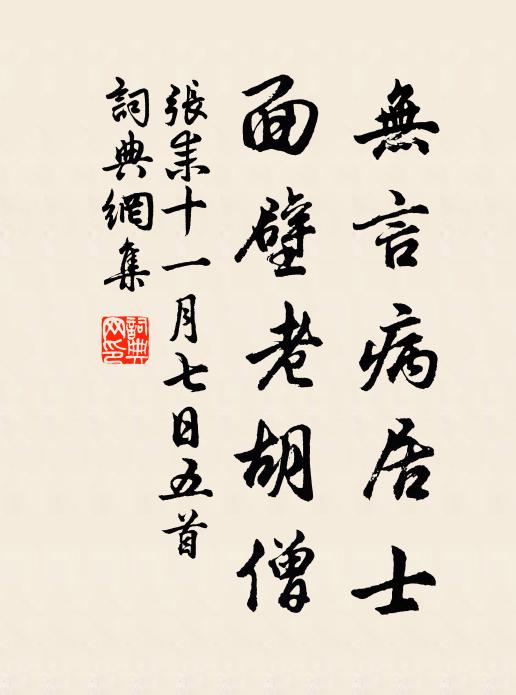 無言病居士
面壁老胡僧
張耒十一月七日五首
詞典網集
詞典网印